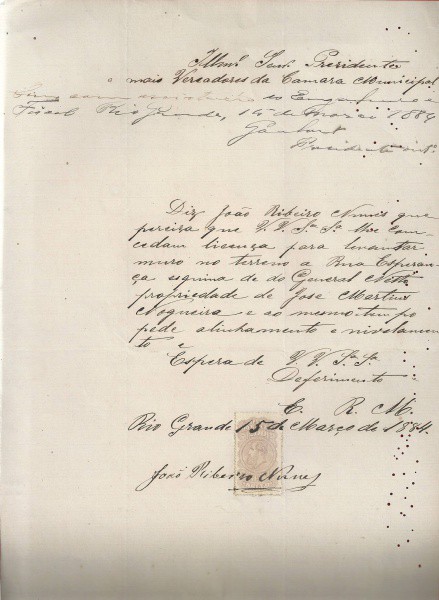 Illmos Senr. Presidente
e mais Vereadores da Camara Municipal
com ao Engenheiro e
Fiscal Rio Grande, 14 de Março 1884
Presidente intº.
Diz João Ribeiro Nunes que
perciza que V. V. Sas. Sas. lhe con-
cedam licença para levantar
muro no terreno a Rua Esperan-
ça esquina de do General Netto
propriedade de Jose Martins
Nogueira e ao mesmo tempo
pede alinhamento e nivelamen-
to e
Espera de V. V. Sas. Sas.
Deferimento
E. R. M.
Rio Grande 15 de Março de 1884.
João Ribeiro Nunes